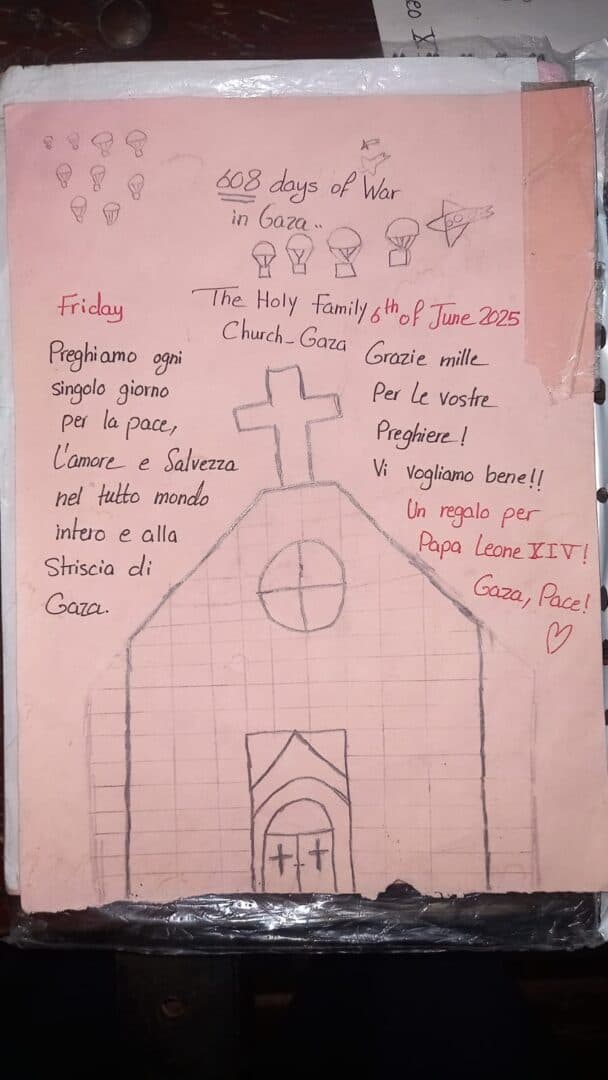 eo X
608 days of War
in Gaza..
Friday
The Holy Family
Church-Gaza
6th of June 2025
Preghiamo ogni
singolo giorno
per la pace,
L'amore e Salvezza
nel tutto mondo
intero e alla
Striscia di
Gaza.
Grazie mille
Per Le vostre
Preghiere!
Vi vogliamo bene!!
Un regalo per
Papa Leone XIV!
Gaza, Pace!